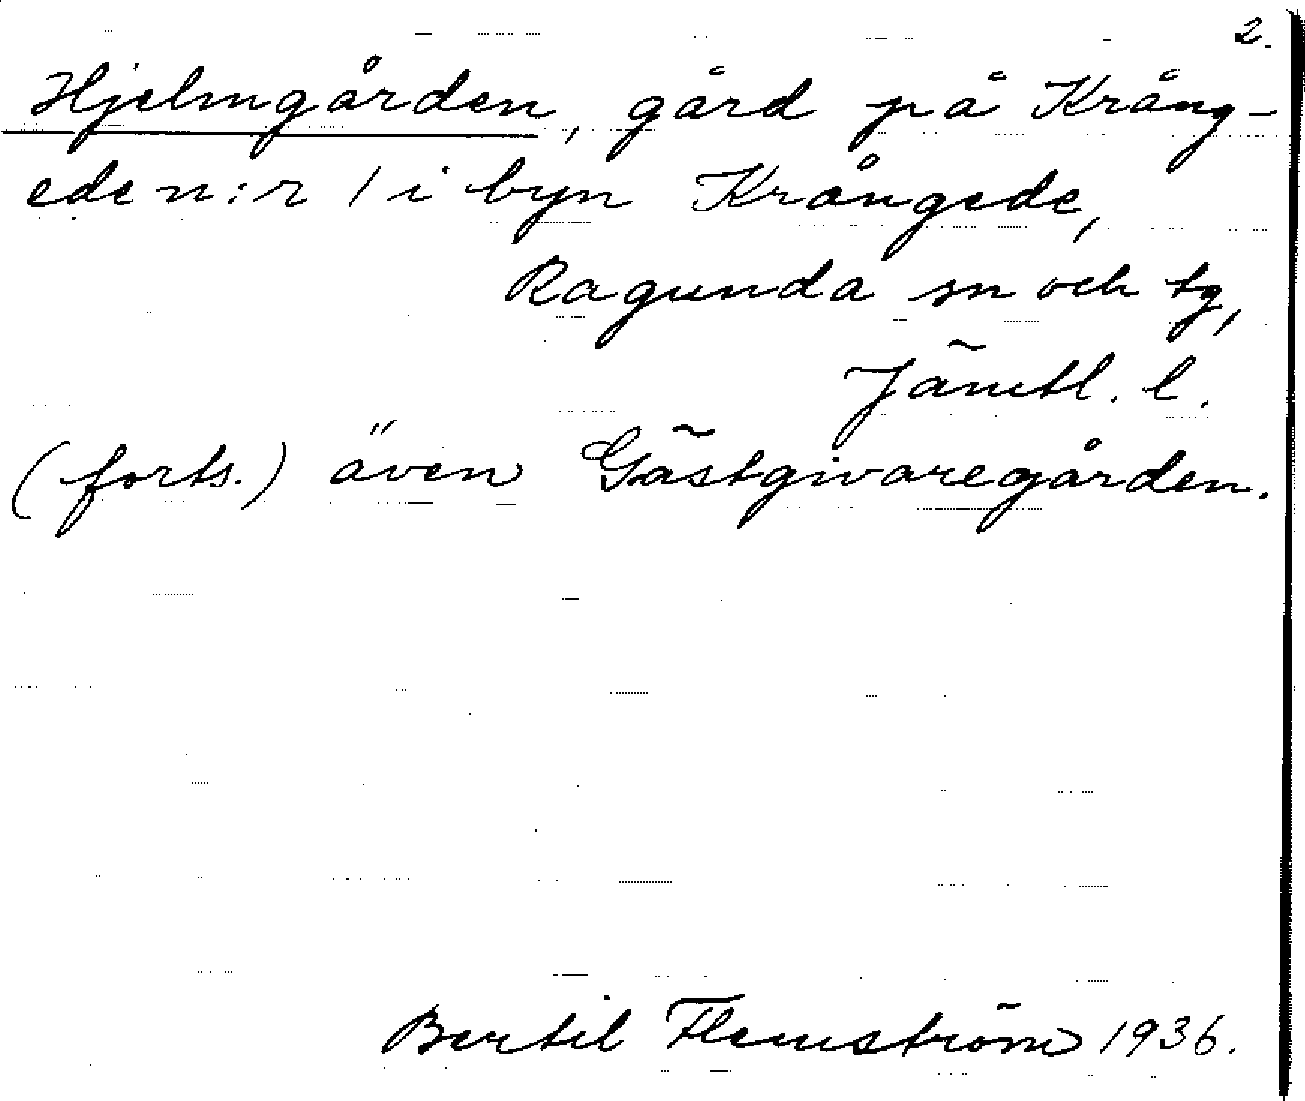 2.
Hjelmgården, gård på Krång-
ede n:r 1 i byn Krångede,
Ragunda sn och tg,
Jämtl. l.
(forts.) även Gästgivaregården.
Bertil Flemström 1936.